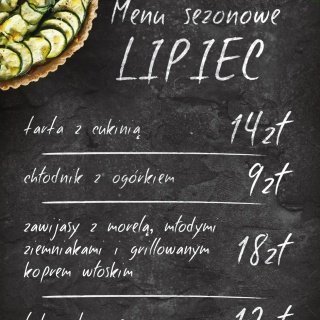 Menu sezonowe
LIPIEC
tarta z cukinią
14zł
chłodnik z ogórkiem
9zł
zawijasy z morelą, młodymi
ziemniakami i grillowanym
koprem włoskim
18zł